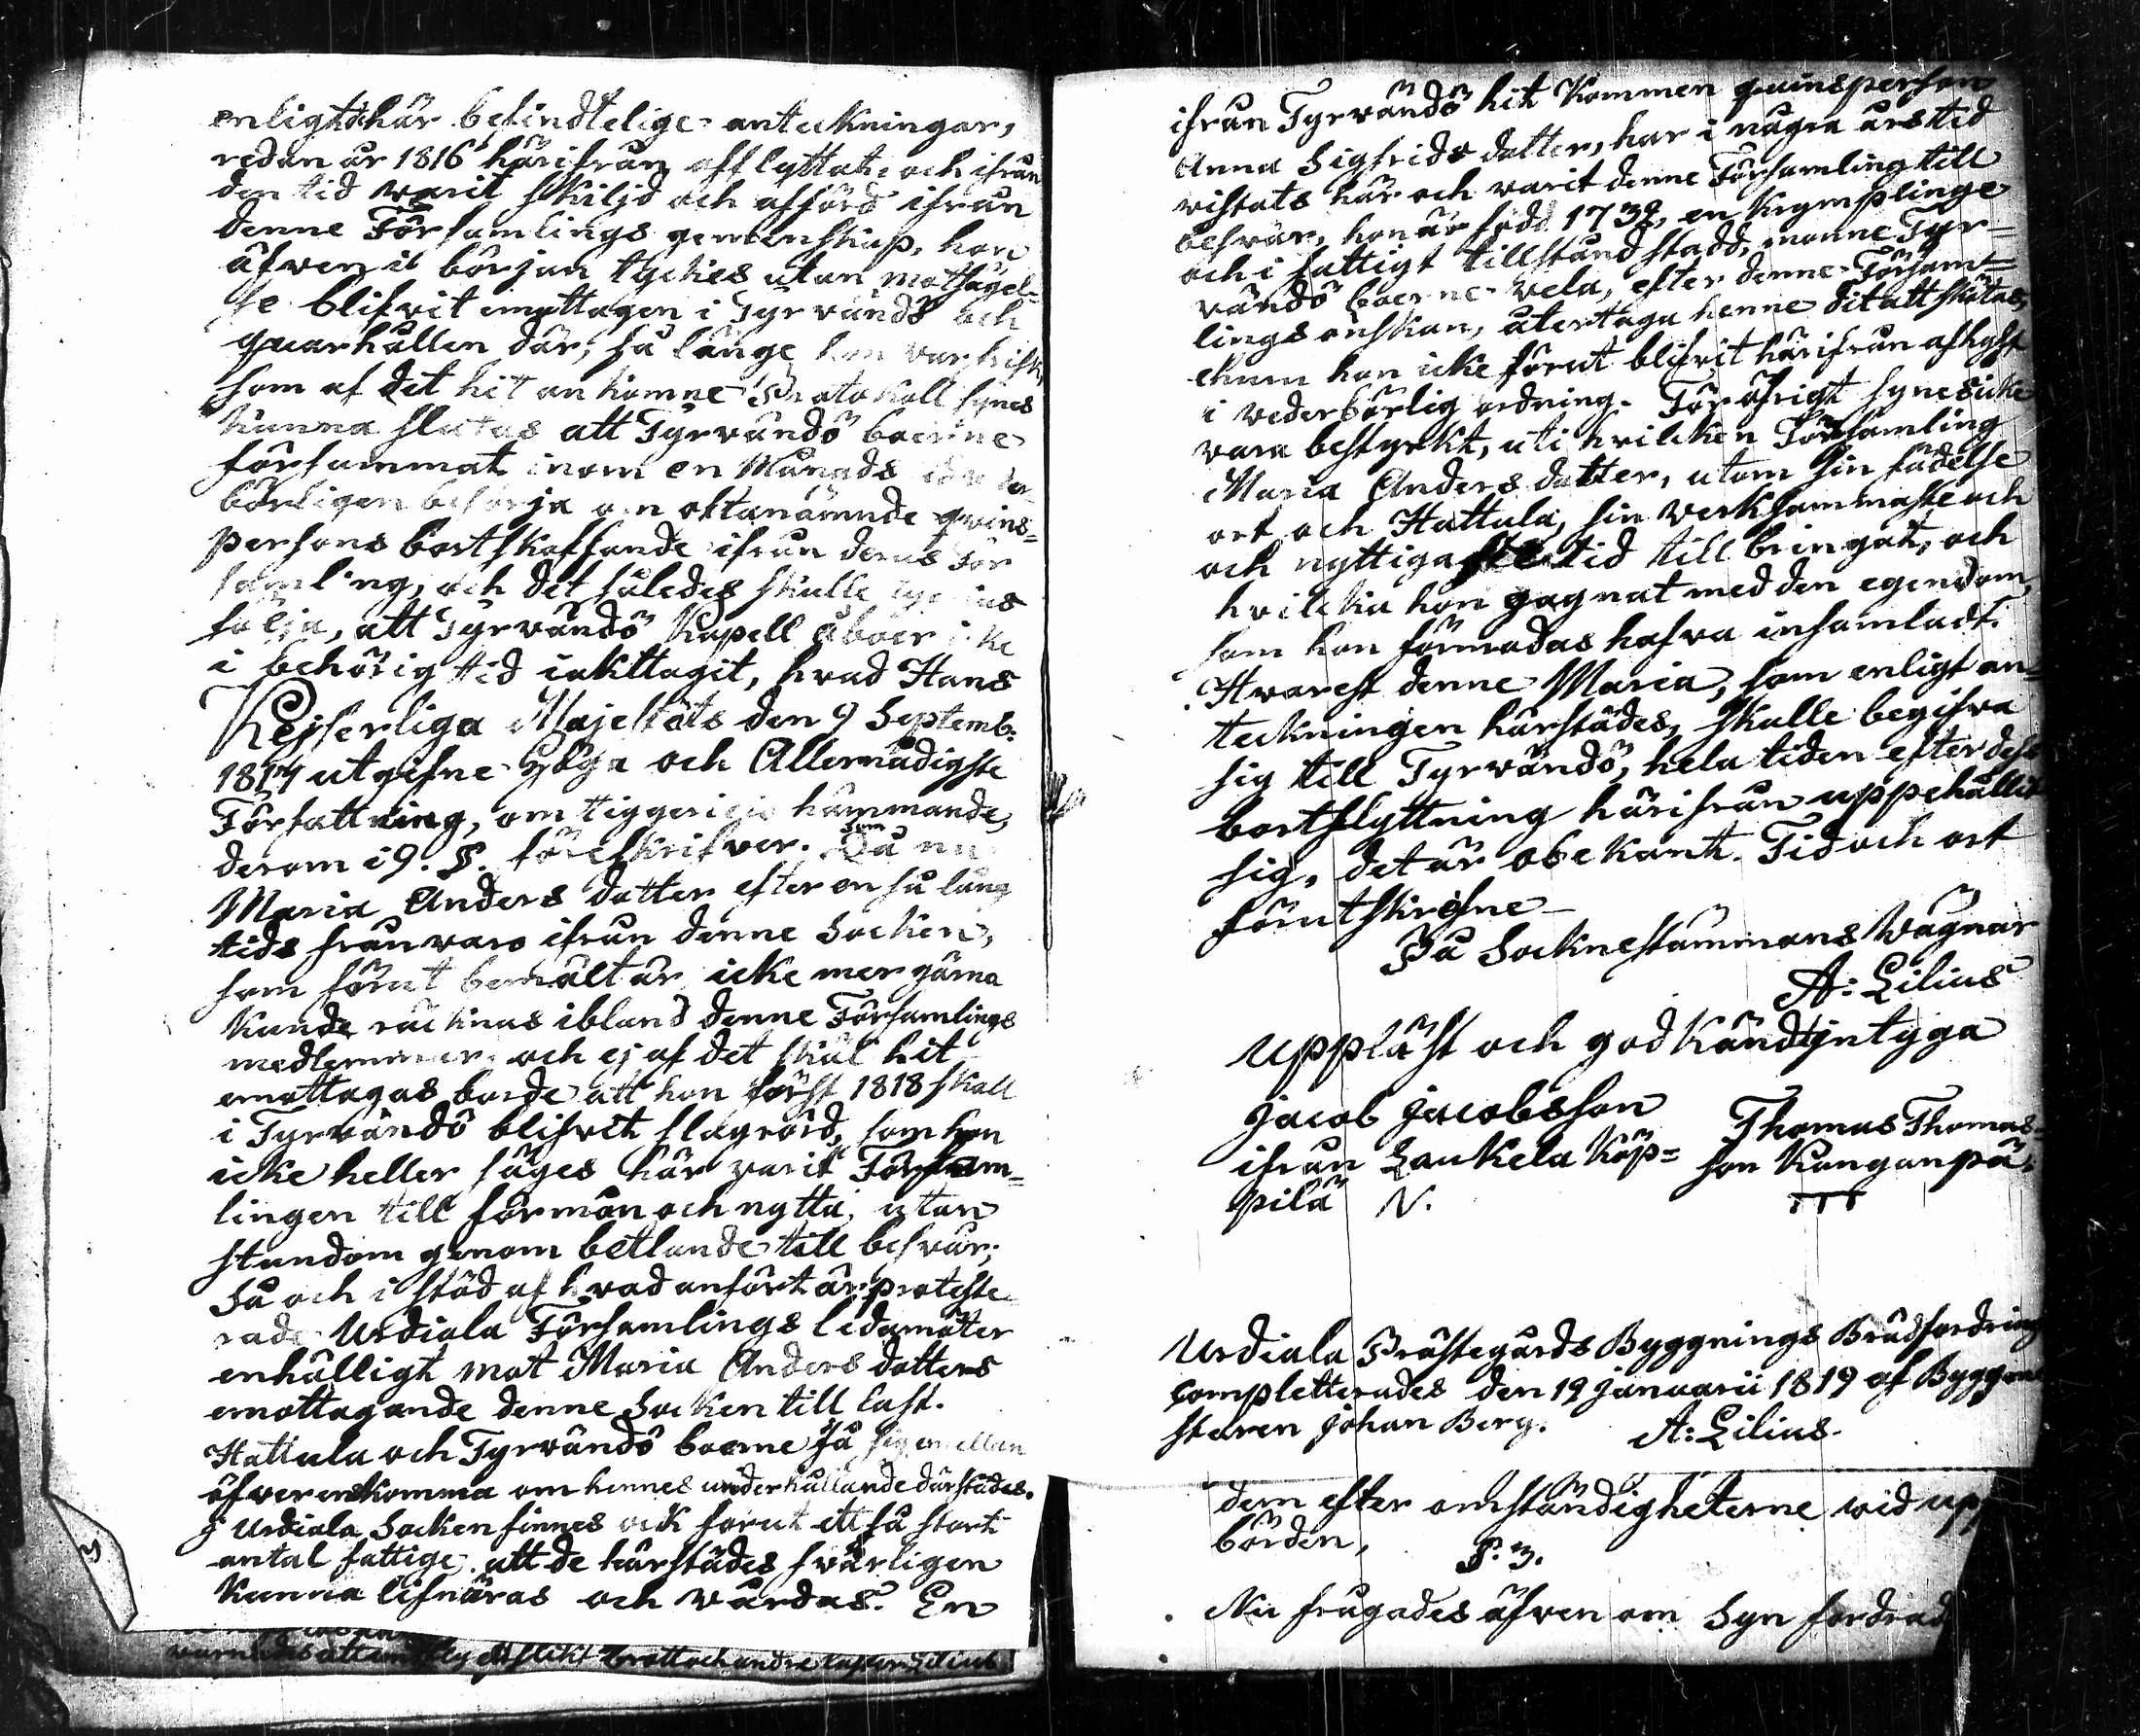 enligt här befindtelige anteckningar,
redan år 1816 härifrån afflyttat och ifrån
den tid warit skiljd och afförd ifrån
denne Församlings gemenskap, hon
äfven i början tyckes utan motsägel=
se blifvit emottagen i Tyrvändö och
quarhållen där, så länge hon war frisk,
som af det hit ankomne Protokoll synes
kunna slutas att Tyrvändö boerne
försummat inom en Månads
börligen besörja om oftanämnde qvins=
persons bortskaffande ifrån deras För
samling, och det således skulle tyckas
följa, att Tyrvändö Kapell åboer icke
i behörig tid iakttagit, hvad Hans
Kejserliga Majestäts den 9 Septemb:
1817 utgifne Höga och Allernådigste
Författning, om tiggeriets hämmande,
derom i 9. §. föreskrifver. Då nu
Maria Anders dotter efter en så lång
tids frånvaro ifrån denne Socken,
som förut bemält är, icke mer gärna
kunde räcknas ibland denne Församlings
medlemmar, och ej af det skäl hit
emottagas borde att hon först 1818 skall
i Tyrvändö blifvit slagrörd, som hon
icke heller säges här varit Försam=
lingen till förmån och nytta, utan
stundom genom betlande till besvär;
Så och i stöd af hvad anfört är, proteste=
rade Urdiala Församlings ledamöter
enhälligt mot Maria Anders dotters
emottagande denne Socken till last.
Hattula och Tyrvändö boerne få sig emellan
öfverenskomma om hennes underhållande därstädes.
I Urdiala Socken finnes ock förut ett så stort
antal fattige, att de härstädes svårligen
kunna lifnäras och vårdas. En
ifrån Tyrvändö hit kommen quinsperson
Anna Sigfrids dotter, har i några års tid
vistats här och varit denne Församling till
besvär, hon är född 1732, en krympling
och i fattigt tillstånd stadd, månne Tyr=
vändö boerne vela, efter denne Försam=
lings önskan, återtaga henne dit att skötas,
ehuru hon icke förut blifvit härifrån afhyst
i vederbörlig ordning. För öfrigt synes icke
vara bestyrkt, uti hvilken Församling
Maria Anders dotter, utom sin födelse
ort och Hattula, sin verksammaste och
och nyttigaste tid till bringat, och
hvilcka hon gagnat med den egendom,
som hon förmodas hafva insamladt.
Hvarest denne Maria, som enligt an=
teckningen härstädes, skulle begifva
sig till Tyrvändö, hela tiden efter dess
bortflyttning härifrån uppehållit
sig, det är obekant. Tid och ort
förutskrifne
På Sockne stämmans vägnar
A: Lilius
Uppläst och godkändt intyga
Jacob Jacobsson
ifrån Laukela Köp=
pilä N.
Thomas Thomas=
son Kanganpä.
Urdiala Prästegårds Byggnings Brädfordring
completterades den 19 Januarii 1819 af Byggmä
staren Johan Berg.
A: Lilius.
dem efter omständigheterne vid upp
börden,
§. 3.
Nu frågades äfven om Syn fordrad